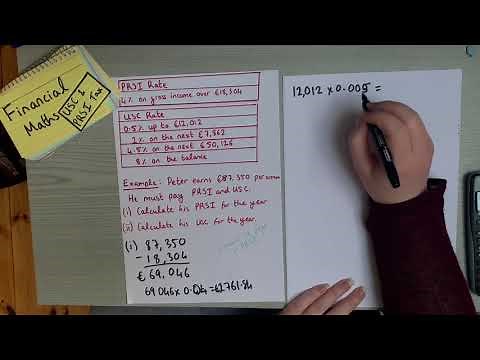 Financial
Maths
USC &
PRSI Tax
PRSI Rate
4% on gross income over €18,304
USC Rate
0.5% up to €12,012
2% on the next €7,862
4.5% on the next €50,126
8% on the balance
Example: Peter earns €87,350 per annum
He must pay PRSI and USC.
(i) Calculate his PRSI for the year.
(ii) Calculate his USC for the year.
(i) 87,350
- 18,304
€ 69,046
69 046 x 0.04 = €2761.84
12,012 x 0.005 =